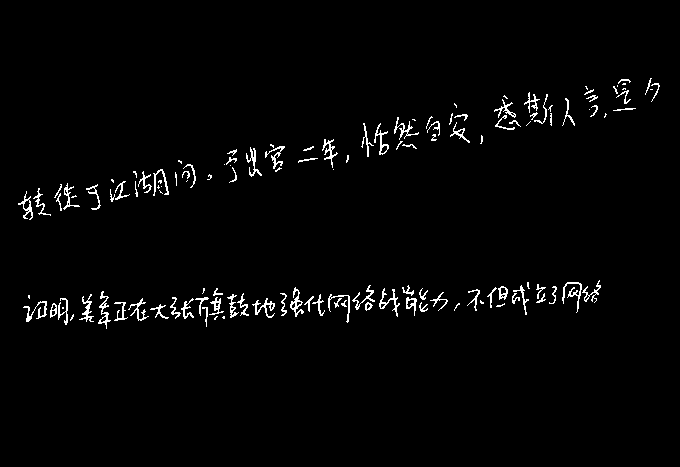 转徙于江湖间。予出官二年，恬然自安，感斯人言，是夕
证明，美军正在大张旗鼓地强化网络战能力，不但成立了网络